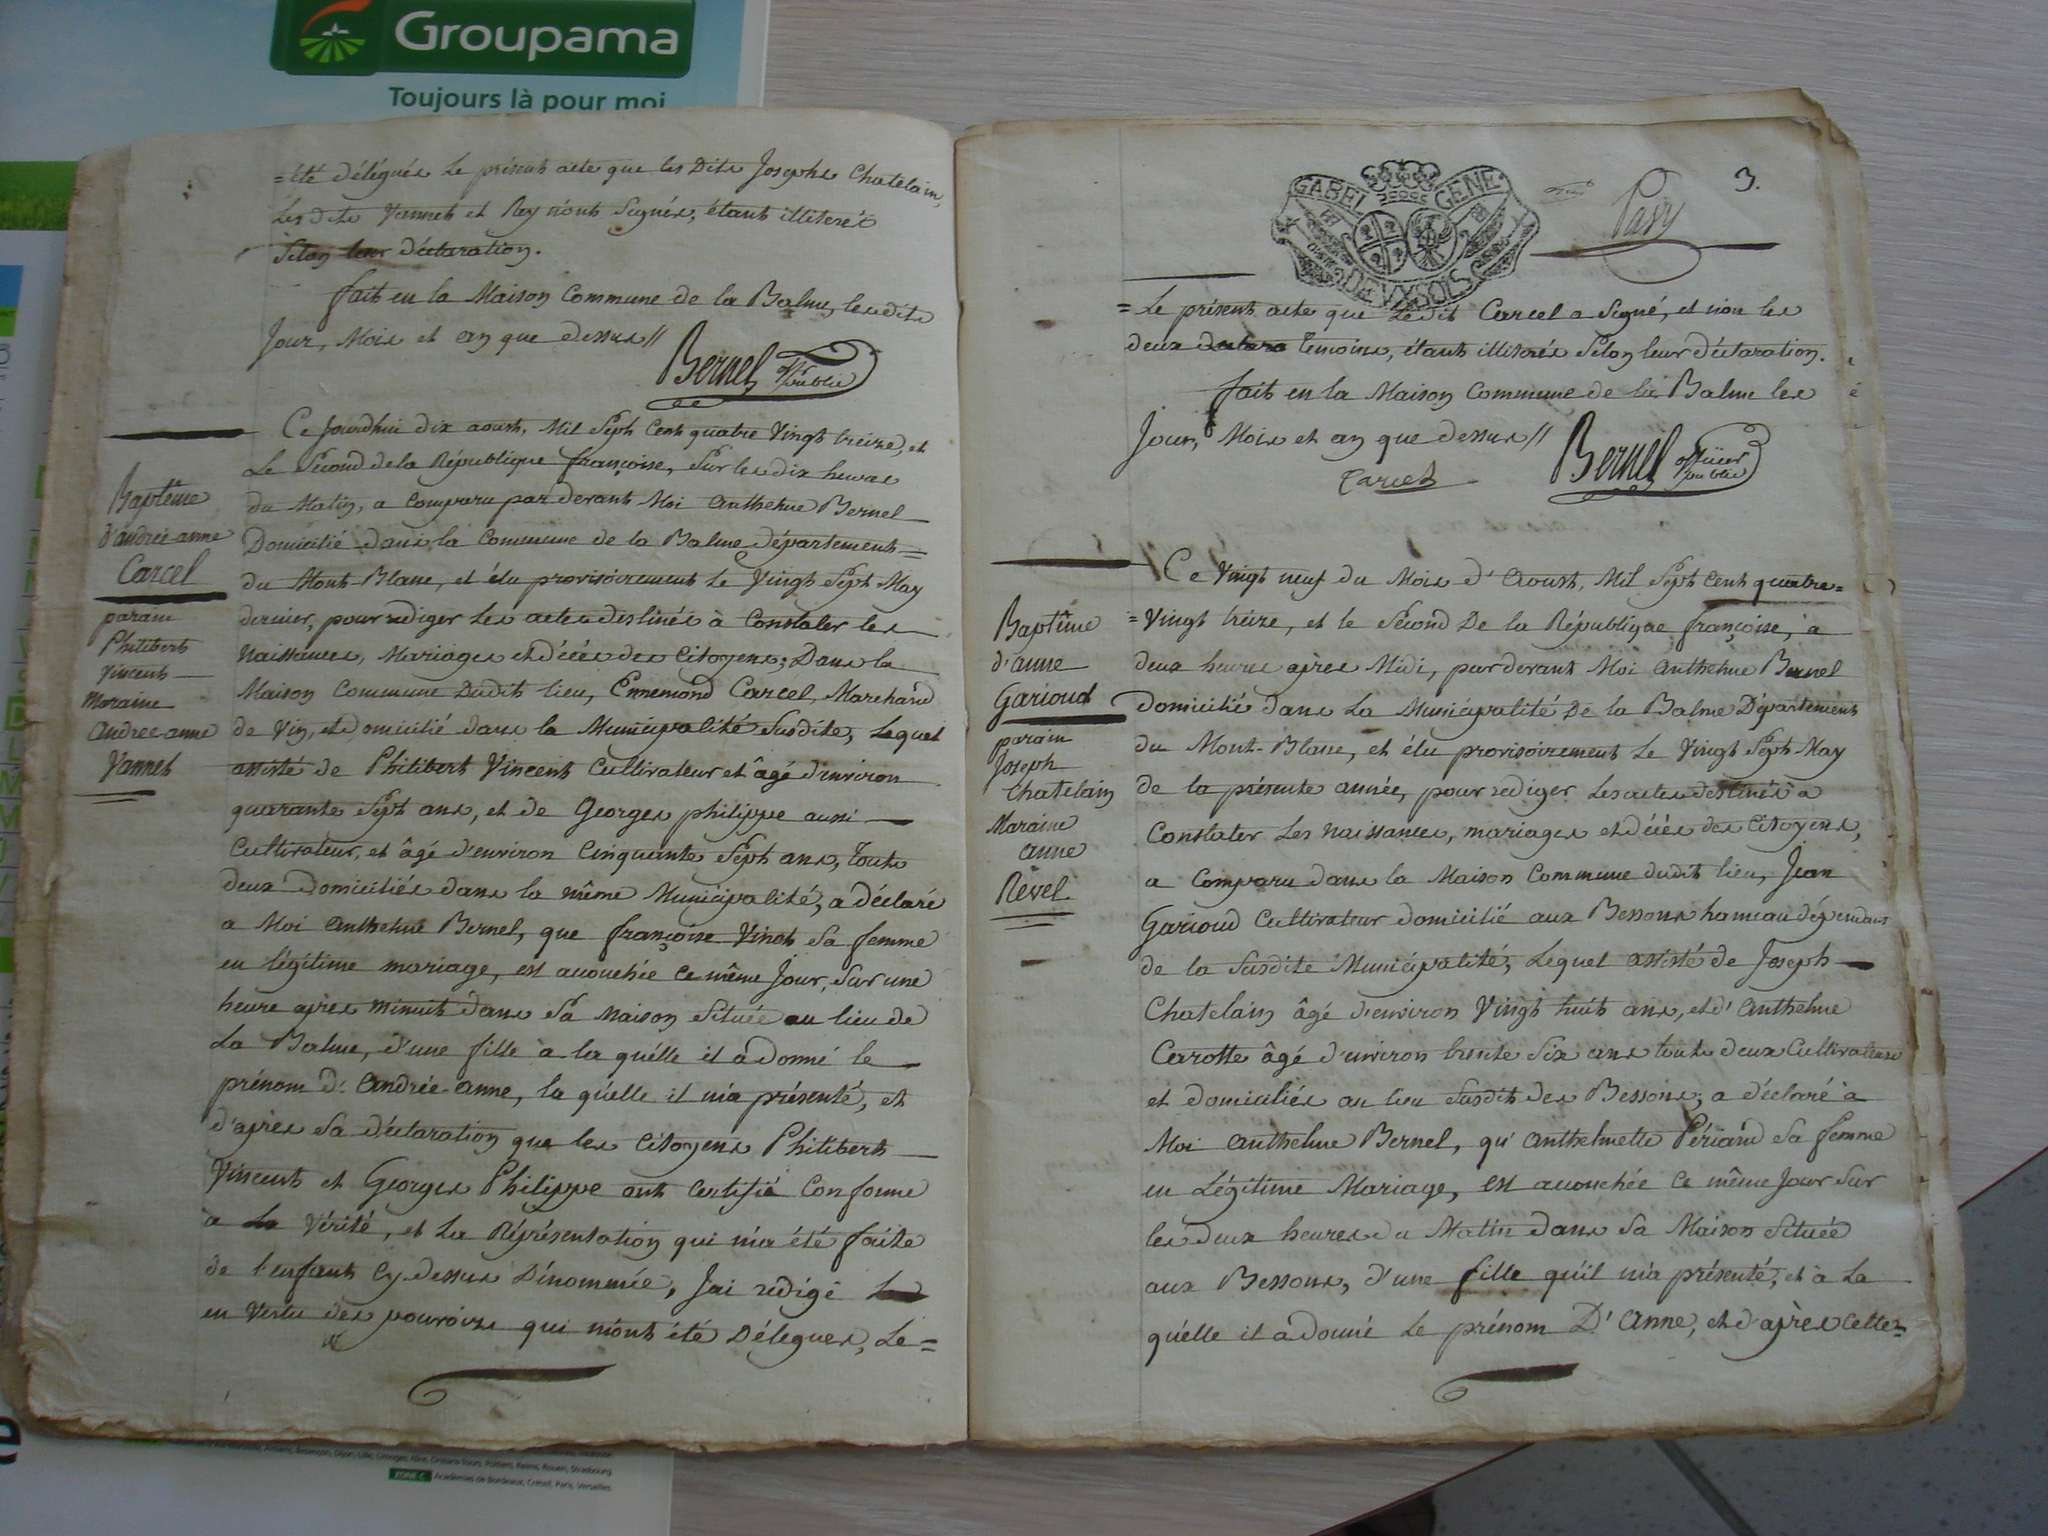 Groupama
Toujours là pour moi
=été délégués le présent acte que les Dits Josephs Chatelain,
Les dits Vannet et Rey n'ont Signés, étant illiterés
Selon leur déclaration.
fait en la Maison Commune de la Balme, lesdits
Jour, Mois et an que dessus //
Bernel off. public
Ce Jourdhui dix aoust, Mil Sept Cent quatre Vingt treize, et
Le Second de la République françoise, Sur les dix heures
du Matin, a Comparu par devant Moi Anthelme Bernel
Domicilié dans la Commune de la Balme département=
du Mont-Blanc, et élu provisoirement le Vingt Sept May
dernier, pour rediger les actes destinés à Constater les
Naissances, Mariages et décés des Citoyens; Dans la
Maison Commune Dudit lieu, Ennemond Carcel, Marchand
de Vin, et domicilié dans la Municipalité Susdite, Lequel
assisté de Philibert Vincent Cultivateur et âgé d'environ
quarante Sept ans, et de Georges philippe aussi
Cultivateur, et âgé d'environ Cinquante Sept ans, touts
deux domiciliés dans la même Municipalité, a déclaré
a Moi Anthelme Bernel, que françoise Vinet Sa femme
en légitime mariage, est acouchée ce même Jour, Sur une
heure après minuit dans Sa Maison Située au lieu de
La Balme, d'une fille a la qu'elle il a donné le
prénom d'Andrée-anne, la qu'elle il m'a présenté, et
d'après Sa déclaration que les Citoyens Philibert
Vincent et Georges Philippe ont Certifié Conforme
a La Vérité, et La Réprésentation qui m'a été faite
de l'enfant Cy-dessus Dénommée, J'ai redigé
en Vertu des pouvoirs qui m'ont été Délegués, Le=
Baptême
d'andrée-anne
Carcel
parain
Philibert
Vincent
Maraine
Andree-anne
Vannet
GABEL GENE
DEUX SOLS
Pavy
3.
=Le présent acte que Ledit Carcel a Signé, et non les
deux temoins, étant illiterés Selon leur déclaration.
fait en la Maison Commune de la Balme les
Jour, Mois et an que dessus //
Carcel
Bernel officier public
Ce Vingt neuf du Mois d'Aoust, Mil Sept Cent quatre=
=Vingt treize, et le Second De la République françoise, a
deux heures après Midi, par devant Moi Anthelme Bernel
domicilié dans La Municipalité De la Balme Département
du Mont-Blanc, et élu provisoirement Le Vingt Sept May
de la présente année, pour rediger Les actes destinés à
Constater Les Naissances, mariages et décés des Citoyens,
a Comparu dans la Maison Commune dudit lieu, Jean
Garioud Cultivateur domicilié aux Bessons hameau dépendant
de la Susdite Municipalité, Lequel assisté de Joseph
Chatelain âgé d'environ Vingt huit ans, et d'Anthelme
Carotte âgé d'environ trente Six ans touts deux Cultivateurs
et domiciliés au lieu Susdit des Bessons; a déclaré à
Moi Anthelme Bernel, qu'Anthelmette Périand Sa femme
en Légitime Mariage, est acouchée Ce même Jour Sur
les deux heures du Matin dans Sa Maison Située
aux Bessons, d'une fille qu'il m'a présenté, et à La
qu'elle il a donné Le prénom D'Anne, et d'après Cette=
Baptême
d'anne
Garioud
parain
Joseph
Chatelain
Maraine
Anne
Revel
ZONE C Académies de Bordeaux, Créteil, Paris, Versailles